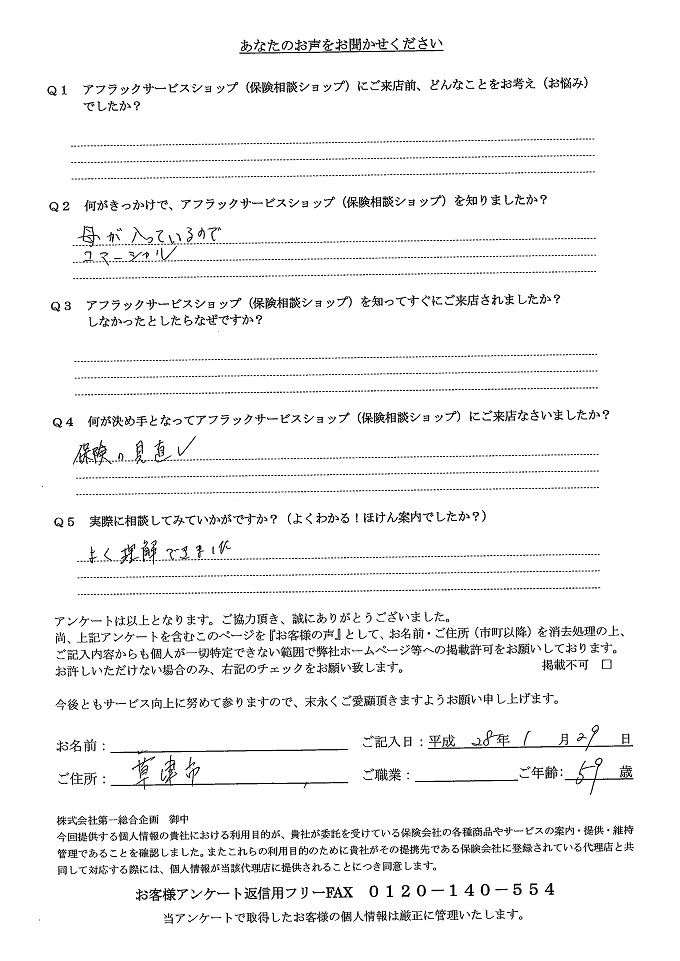 あなたのお声をお聞かせください
Q1 アフラックサービスショップ（保険相談ショップ）にご来店前、どんなことをお考え（お悩み）
でしたか？
Q2 何がきっかけで、アフラックサービスショップ（保険相談ショップ）を知りましたか？
母が入っているので
コマーシャル
Q3 アフラックサービスショップ（保険相談ショップ）を知ってすぐにご来店されましたか？
しなかったとしたらなぜですか？
Q4 何が決め手となってアフラックサービスショップ（保険相談ショップ）にご来店なさいましたか？
保険の見直し
Q5 実際に相談してみていかがですか？（よくわかる！ほけん案内でしたか？）
よく理解できました
アンケートは以上となります。ご協力頂き、誠にありがとうございました。
尚、上記アンケートを含むこのページを『お客様の声』として、お名前・ご住所（市町以降）を消去処理の上、
ご記入内容からも個人が一切特定できない範囲で弊社ホームページ等への掲載許可をお願いしております。
お許しいただけない場合のみ、右記のチェックをお願い致します。 掲載不可 □
今後ともサービス向上に努めて参りますので、末永くご愛顧頂きますようお願い申し上げます。
お名前： ご記入日：平成 28年 1 月29 日
ご住所： 草津市 ご職業： ご年齢：59 歳
株式会社第一総合企画 御中
今回提供する個人情報の貴社における利用目的が、貴社が委託を受けている保険会社の各種商品やサービスの案内・提供・維持
管理であることを確認しました。またこれらの利用目的のために貴社がその提携先である保険会社に登録されている代理店と共
同して対応する際には、個人情報が当該代理店に提供されることにつき同意します。
お客様アンケート返信用フリーFAX ０１２０－１４０－５５４
当アンケートで取得したお客様の個人情報は厳正に管理いたします。